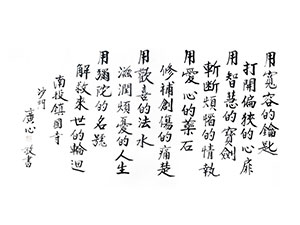 用寬容的鑰匙
打開偏狹的心扉
用智慧的寶劍
斬斷煩惱的情執
用愛心的藥石
修補創傷的痛楚
用歡喜的法水
滋潤煩憂的人生
用彌陀的名號
解救來世的輪迴
南投鎮國寺
沙門
廣心 敬書